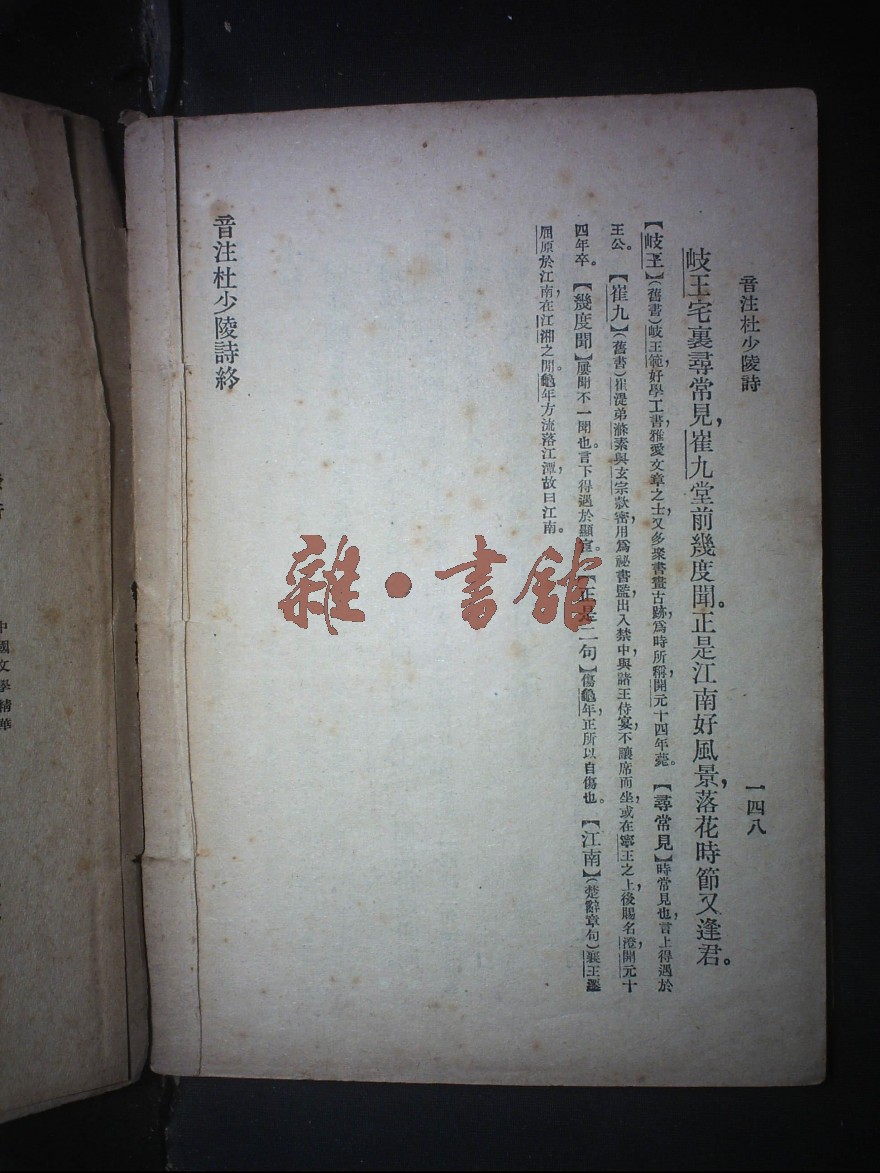 音注杜少陵詩
一四八
岐王宅裏尋常見，崔九堂前幾度聞。正是江南好風景，落花時節又逢君。
【岐王】（舊書）岐王範，好學工書，雅愛文章之士，又多聚書畫古跡，爲時所稱，開元十四年薨。【尋常見】時常見也，言上得遇於
王公。【崔九】（舊書）崔湜弟滌，素與玄宗款密，用爲祕書監，出入禁中，與諸王侍宴，不讓席而坐，或在寧王之上，後賜名澄，開元十
四年卒。【幾度聞】屢聞不一聞也。言下得遇於顯宦。【正是二句】傷龜年，正所以自傷也。【江南】（楚辭章句）襄王遷
屈原於江南，在江湘之間。龜年方流落江潭，故曰江南。
音注杜少陵詩終
雜·書館
中國文學精華